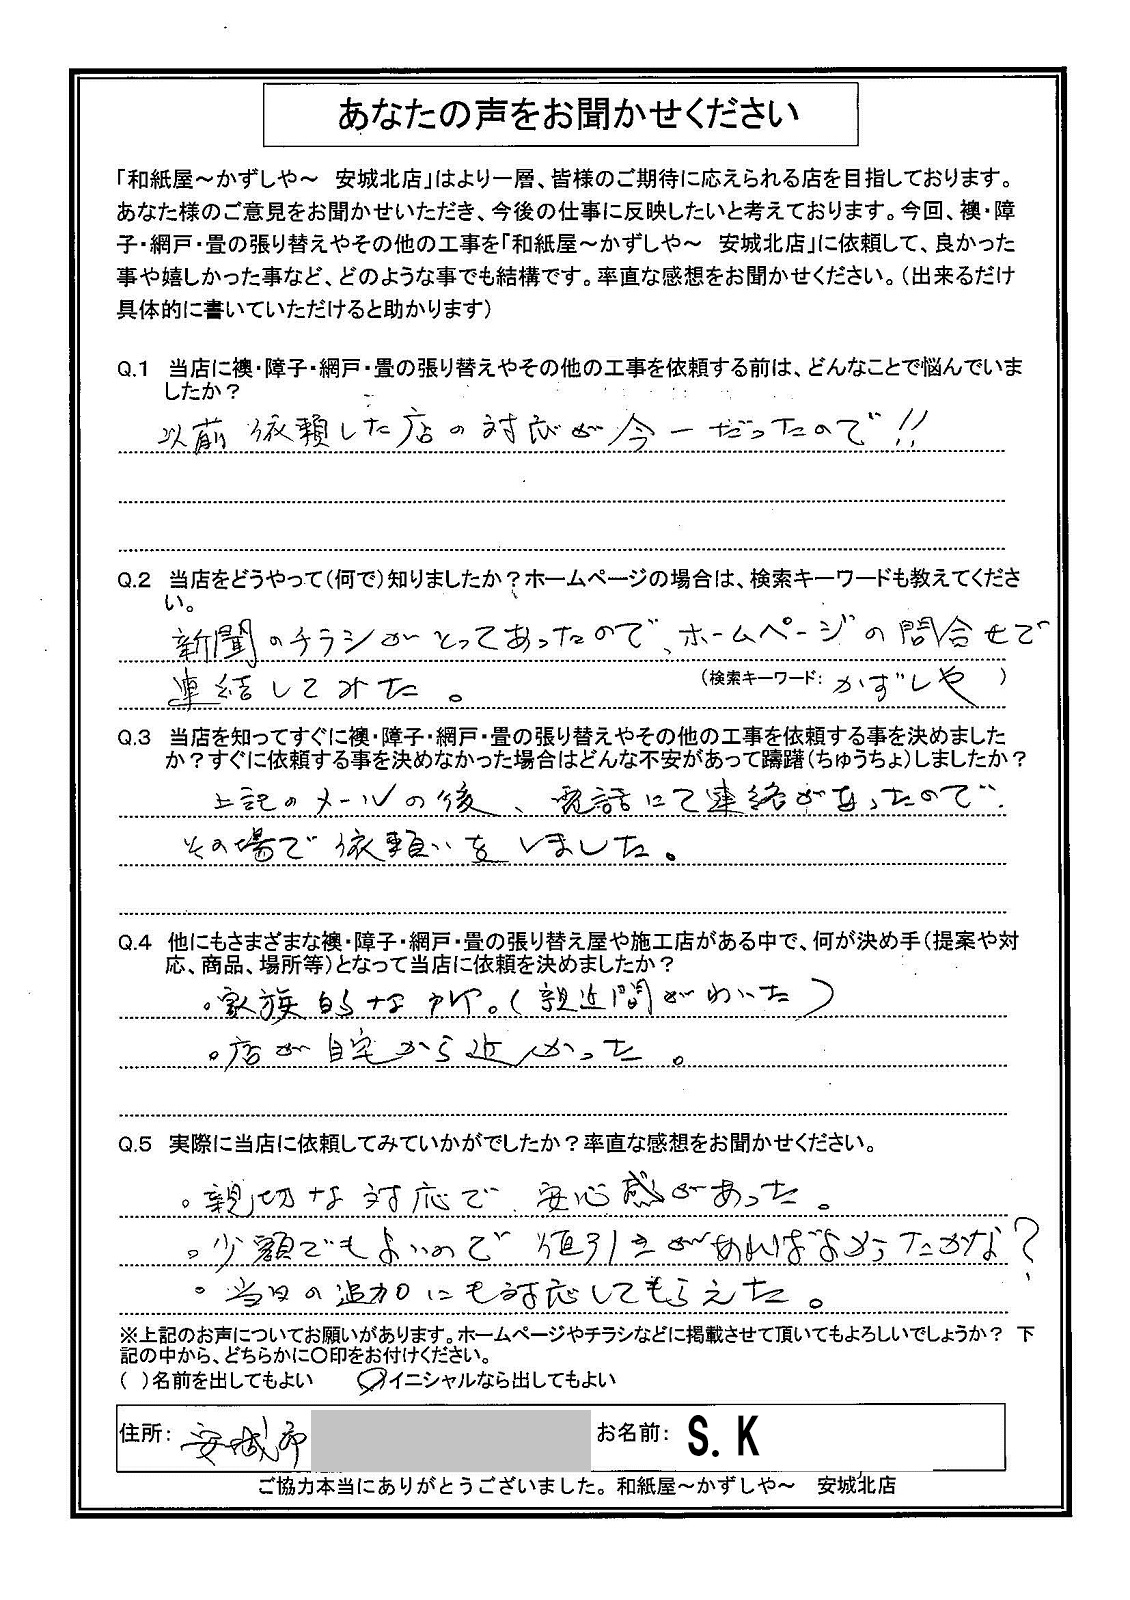 あなたの声をお聞かせください
「和紙屋～かずしや～　安城北店」はより一層、皆様のご期待に応えられる店を目指しております。
あなた様のご意見をお聞かせいただき、今後の仕事に反映したいと考えております。今回、襖・障
子・網戸・畳の張り替えやその他の工事を「和紙屋～かずしや～　安城北店」に依頼して、良かった
事や嬉しかった事など、どのような事でも結構です。率直な感想をお聞かせください。（出来るだけ
具体的に書いていただけると助かります）
Q.1　当店に襖・障子・網戸・畳の張り替えやその他の工事を依頼する前は、どんなことで悩んでいま
したか？
以前依頼した店の対応が今一だったので!!
Q.2　当店をどうやって（何で）知りましたか？ホームページの場合は、検索キーワードも教えてくださ
い。
新聞のチラシがとってあったので、ホームページの問合せで
連結してみた。　（検索キーワード： かずしや ）
Q.3　当店を知ってすぐに襖・障子・網戸・畳の張り替えやその他の工事を依頼する事を決めました
か？すぐに依頼する事を決めなかった場合はどんな不安があって躊躇（ちゅうちょ）しましたか？
上記のメールの後、電話にて連絡があったので、
その場で依頼いをしました。
Q.4　他にもさまざまな襖・障子・網戸・畳の張り替え屋や施工店がある中で、何が決め手（提案や対
応、商品、場所等）となって当店に依頼を決めましたか？
。家族的な所。（親近間がわいた）
。店が自宅から近かった。
Q.5　実際に当店に依頼してみていかがでしたか？率直な感想をお聞かせください。
。親切な対応で、安心感があった。
。少額でもよいので値引きがあればよかったかな？
。当日の追加にも対応してもらえた。
※上記のお声についてお願いがあります。ホームページやチラシなどに掲載させて頂いてもよろしいでしょうか？　下
記の中から、どちらかに〇印をお付けください。
（ ）名前を出してもよい　（〇）イニシャルなら出してもよい
住所： 安城市　お名前： S.K
ご協力本当にありがとうございました。和紙屋～かずしや～　安城北店